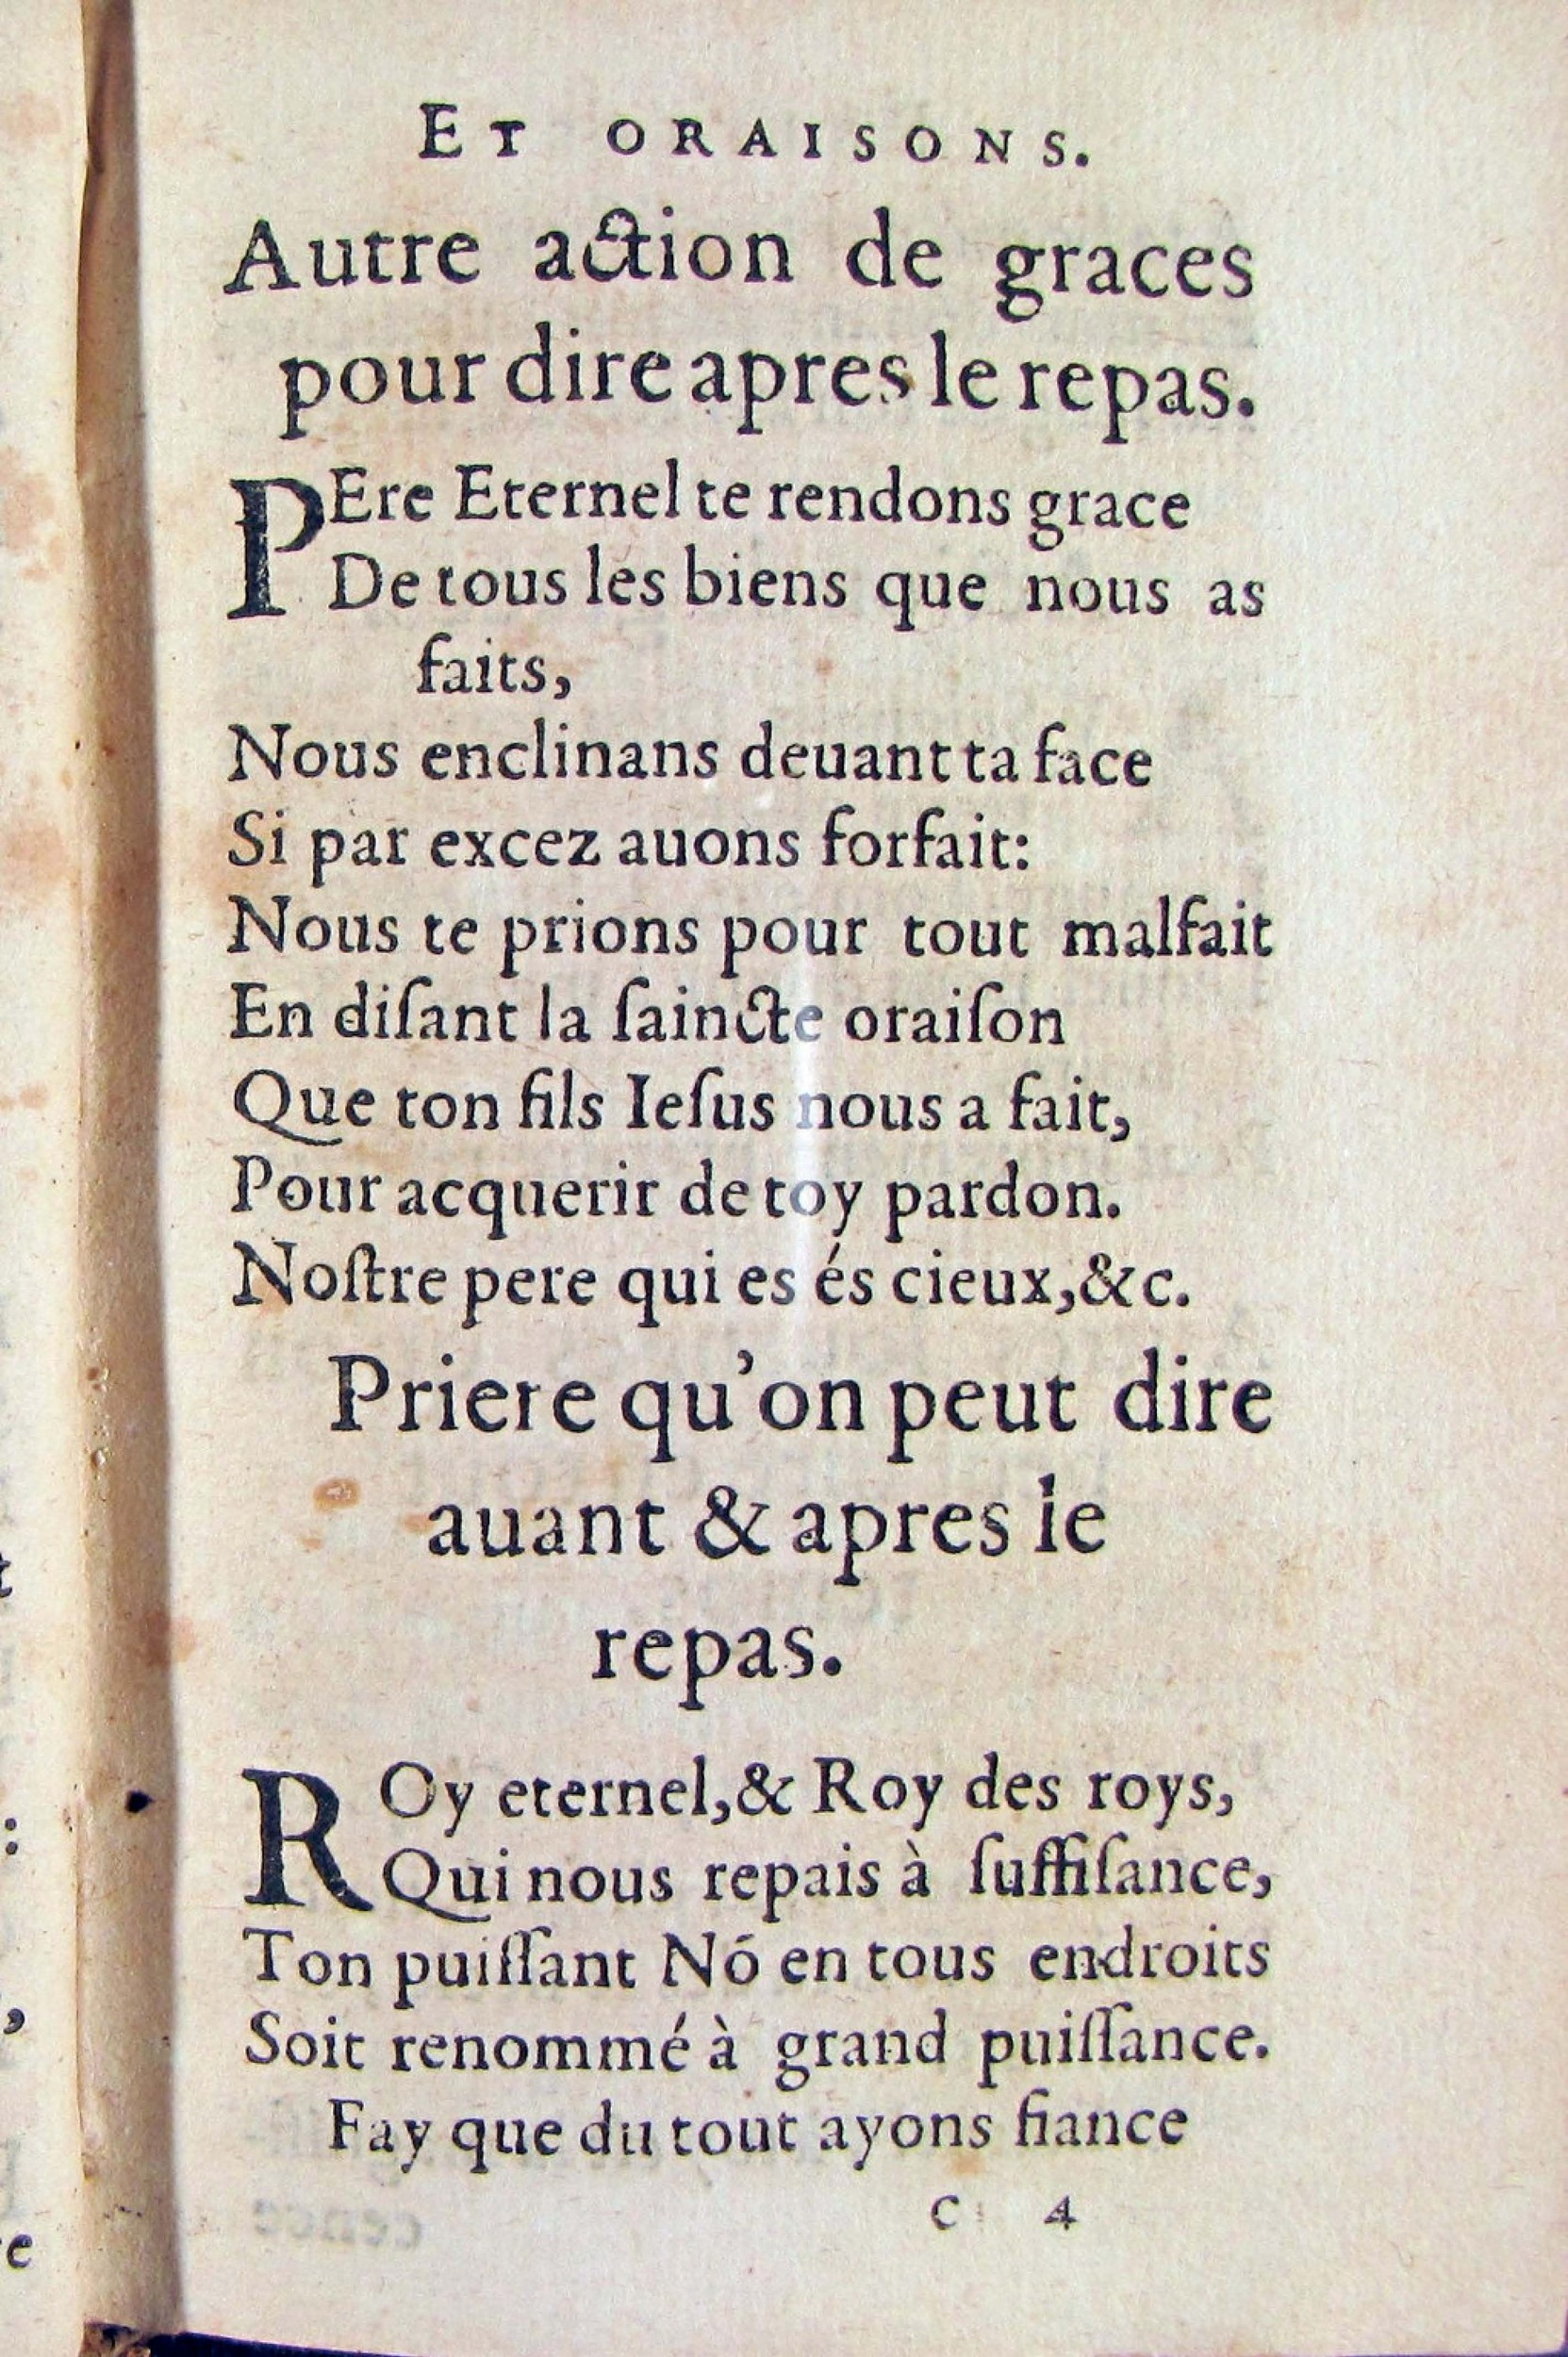 ET ORAISONS.
Autre action de graces
pour dire apres le repas.
PEre Eternel te rendons grace
De tous les biens que nous as
faits,
Nous enclinans deuant ta face
Si par excez auons forfait:
Nous te prions pour tout malfait
En diſant la ſaincte oraiſon
Que ton fils Ieſus nous a fait,
Pour acquerir de toy pardon.
Noſtre pere qui es és cieux,&c.
Priere qu'on peut dire
auant & apres le
repas.
ROy eternel,& Roy des roys,
Qui nous repais à ſuffiſance,
Ton puiſſant Nó en tous endroits
Soit renommé à grand puiſſance.
Fay que du tout ayons fiance
C 4